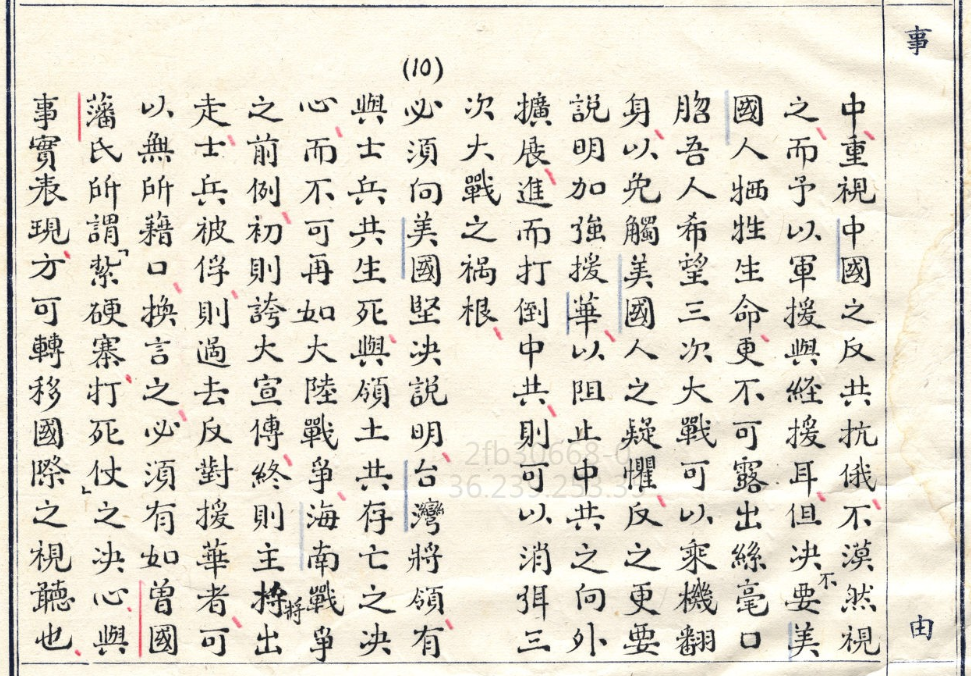 事由
中、重視中國之反共抗俄、不漠然視
之、而予以軍援與経援耳、但决不要美
國人牺牲生命、更不可露出絲毫口
脗吾人希望三次大戰可以乘機翻
身、以免觸美國人之疑懼、反之更要
説明加強援華、以阻止中共之向外
擴展、進而打倒中共、則可以消弭三
次大戰之禍根、
(10)必須向美國堅决説明、台灣將領有
與士兵共生死、與領土共存亡之决
心、而不可再如大陸戰争、海南戰争
之前例、初則誇大宣傳、終則主將出
走、士兵被俘、則過去反對援華者、可
以無所藉口、換言之、必須有如曽國
藩氏所謂「紮硬寨、打死仗」之决心、與
事實表現、方可轉移國際之視聽也、
2fb30668-0